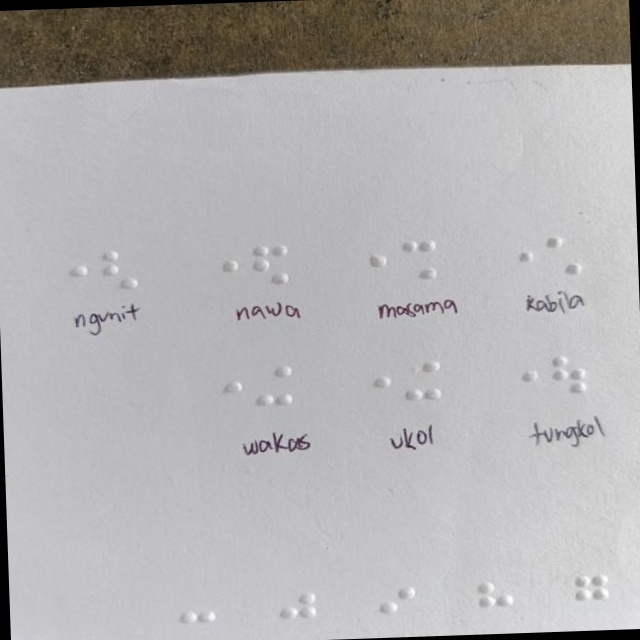 ngunit nawa masama kabila
wakas ukol tungkol